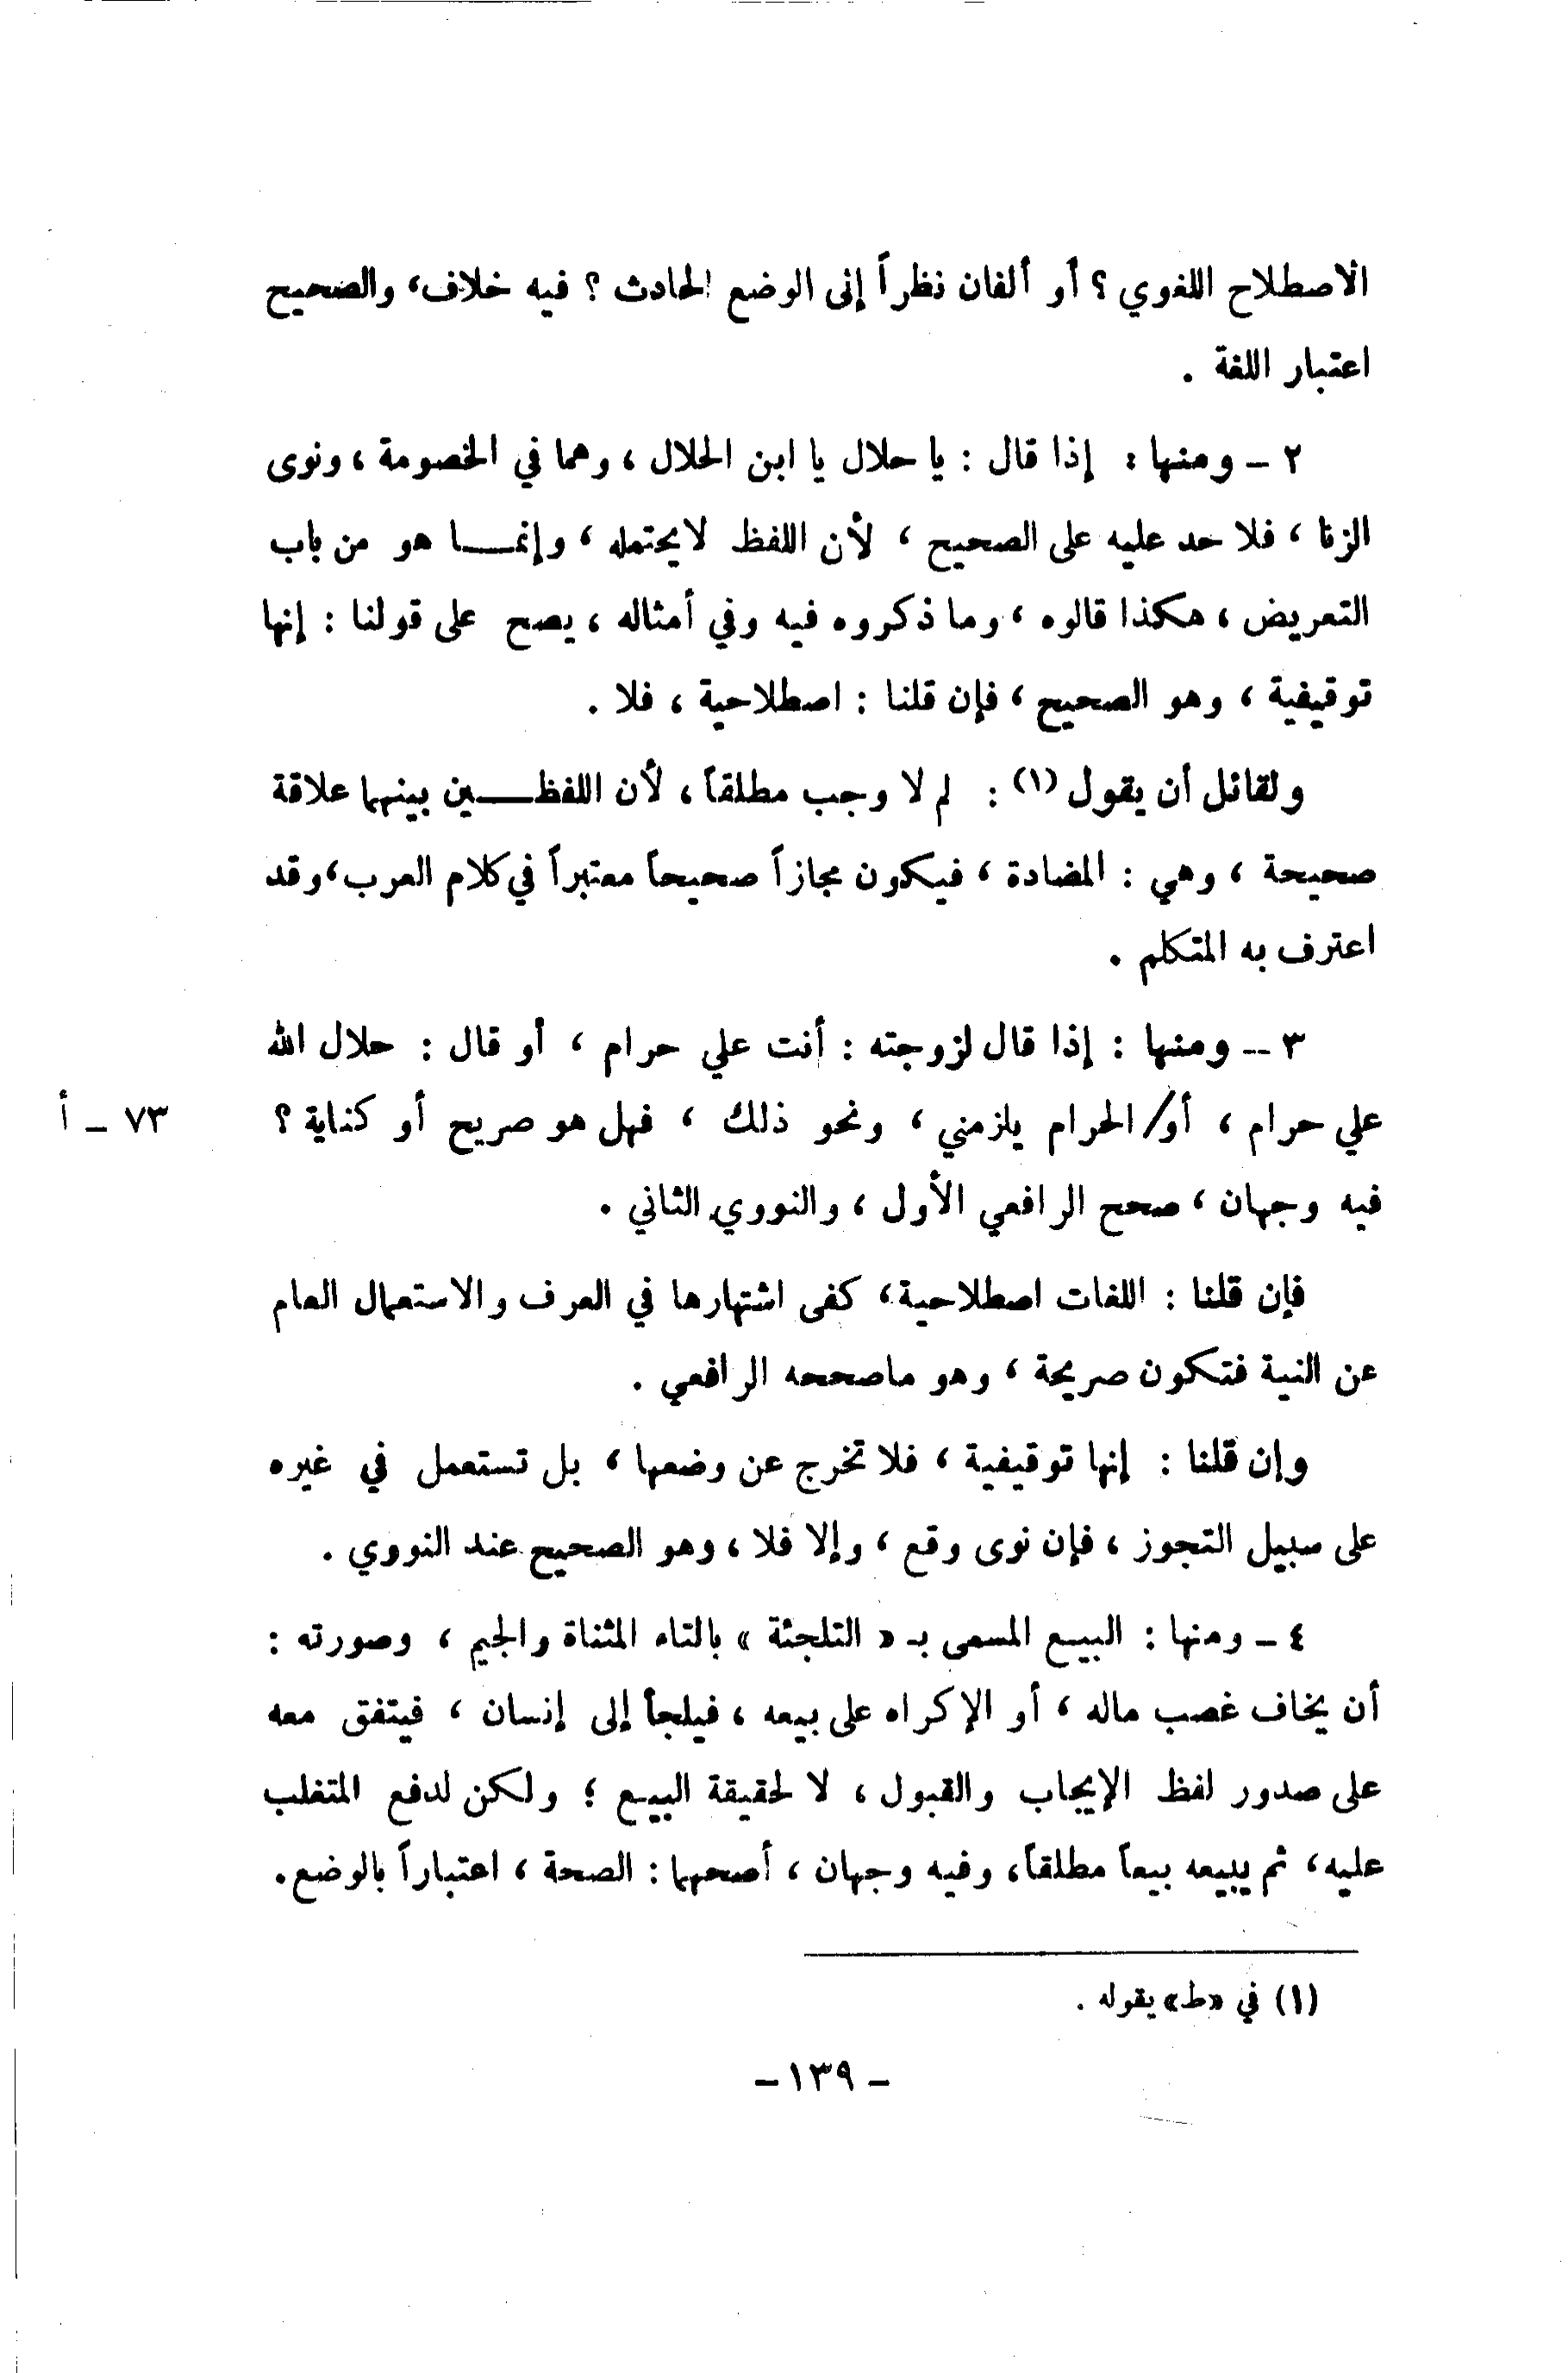 الاصطلاح اللغوي ؟ أو ألفان نظراً إلى الوضع الحادث ؟ فيه خلاف، والصحيح
اعتبار اللغة .
٢ ـ ومنها : إذا قال : يا حلال يا ابن الحلال ، وهما في الخصومة ، ونوى
الزنا ، فلا حد عليه على الصحيح ، لأن اللفظ لا يحتمله ، وإنمــا هو من باب
التعريض ، هكذا قالوه ، وما ذكروه فيه وفي أمثاله ، يصح على قولنا : إنها
توقيفية ، وهو الصحيح ، فإن قلنا : اصطلاحية ، فلا .
ولقائل أن يقول (١) : لم لا وجب مطلقاً ، لأن اللفظــين بينهما علاقة
صحيحة ، وهي : المضادة ، فيكون مجازاً صحيحاً معتبراً في كلام العرب، وقد
اعترف به المتكلم .
٣ ــ ومنها : إذا قال لزوجته : أنت علي حرام ، أو قال : حلال الله
علي حرام ، أو/ الحرام يلزمني ، ونحو ذلك ، فهل هو صريح أو كناية ؟ ٧٣ ـ أ
فيه وجهان ، صحح الرافعي الأول ، والنووي الثاني .
فإن قلنا : اللغات اصطلاحية، كفى اشتهارها في العرف والاستعمال العام
عن النية فتكون صريحة ، وهو ماصححه الرافعي .
وإن قلنا : إنها توقيفية ، فلا تخرج عن وضعها ، بل تستعمل في غيره
على سبيل التجوز ، فإن نوى وقع ، وإلا فلا ، وهو الصحيح عند النووي .
٤ ـ ومنها : البيع المسمى بـ « التلجئة » بالتاء المثناة والجيم ، وصورته :
أن يخاف غصب ماله ، أو الإكراه على بيعه ، فيلجأ إلى إنسان ، فيتفق معه
على صدور لفظ الإيجاب والقبول ، لا لحقيقة البيع ؛ ولكن لدفع المتغلب
عليه، ثم يبيعه بيعاً مطلقاً، وفيه وجهان ، أصحهما : الصحة ، اعتباراً بالوضع.
(١) في «ط» يقوله .
ـ ١٣٩ ـ